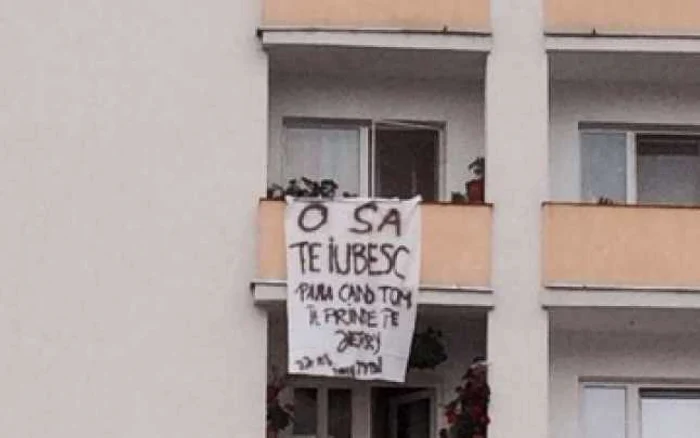 O SA
TE IUBESC
PANA CAND TOM
IL PRINDE PE
JERRY
22.03